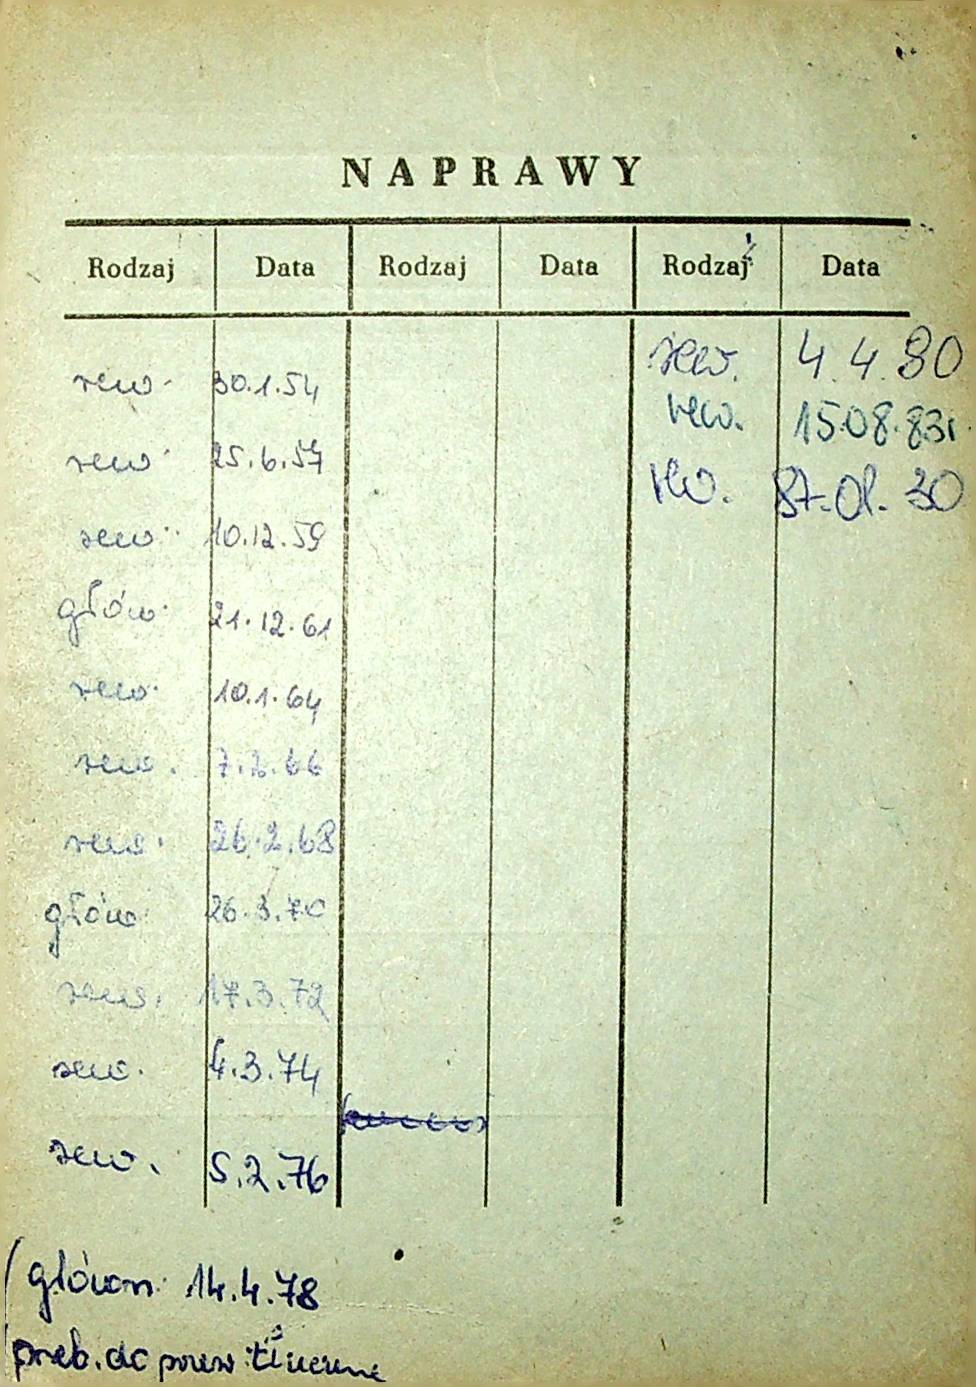 NAPRAWY
Rodzaj Data Rodzaj Data Rodzaj Data
rew. 30.1.54
rew. 25.6.57
rew. 10.12.59
głów. 21.12.61
rew. 10.1.64
rew. 7.2.66
rew. 26.2.68
głów. 26.3.70
rew. 17.3.72
rew. 4.3.74
rew. 5.2.76
rew. 4.4.80
rew. 15.08.83r.
rew. 87-01-30
(główn. 14.4.78
do